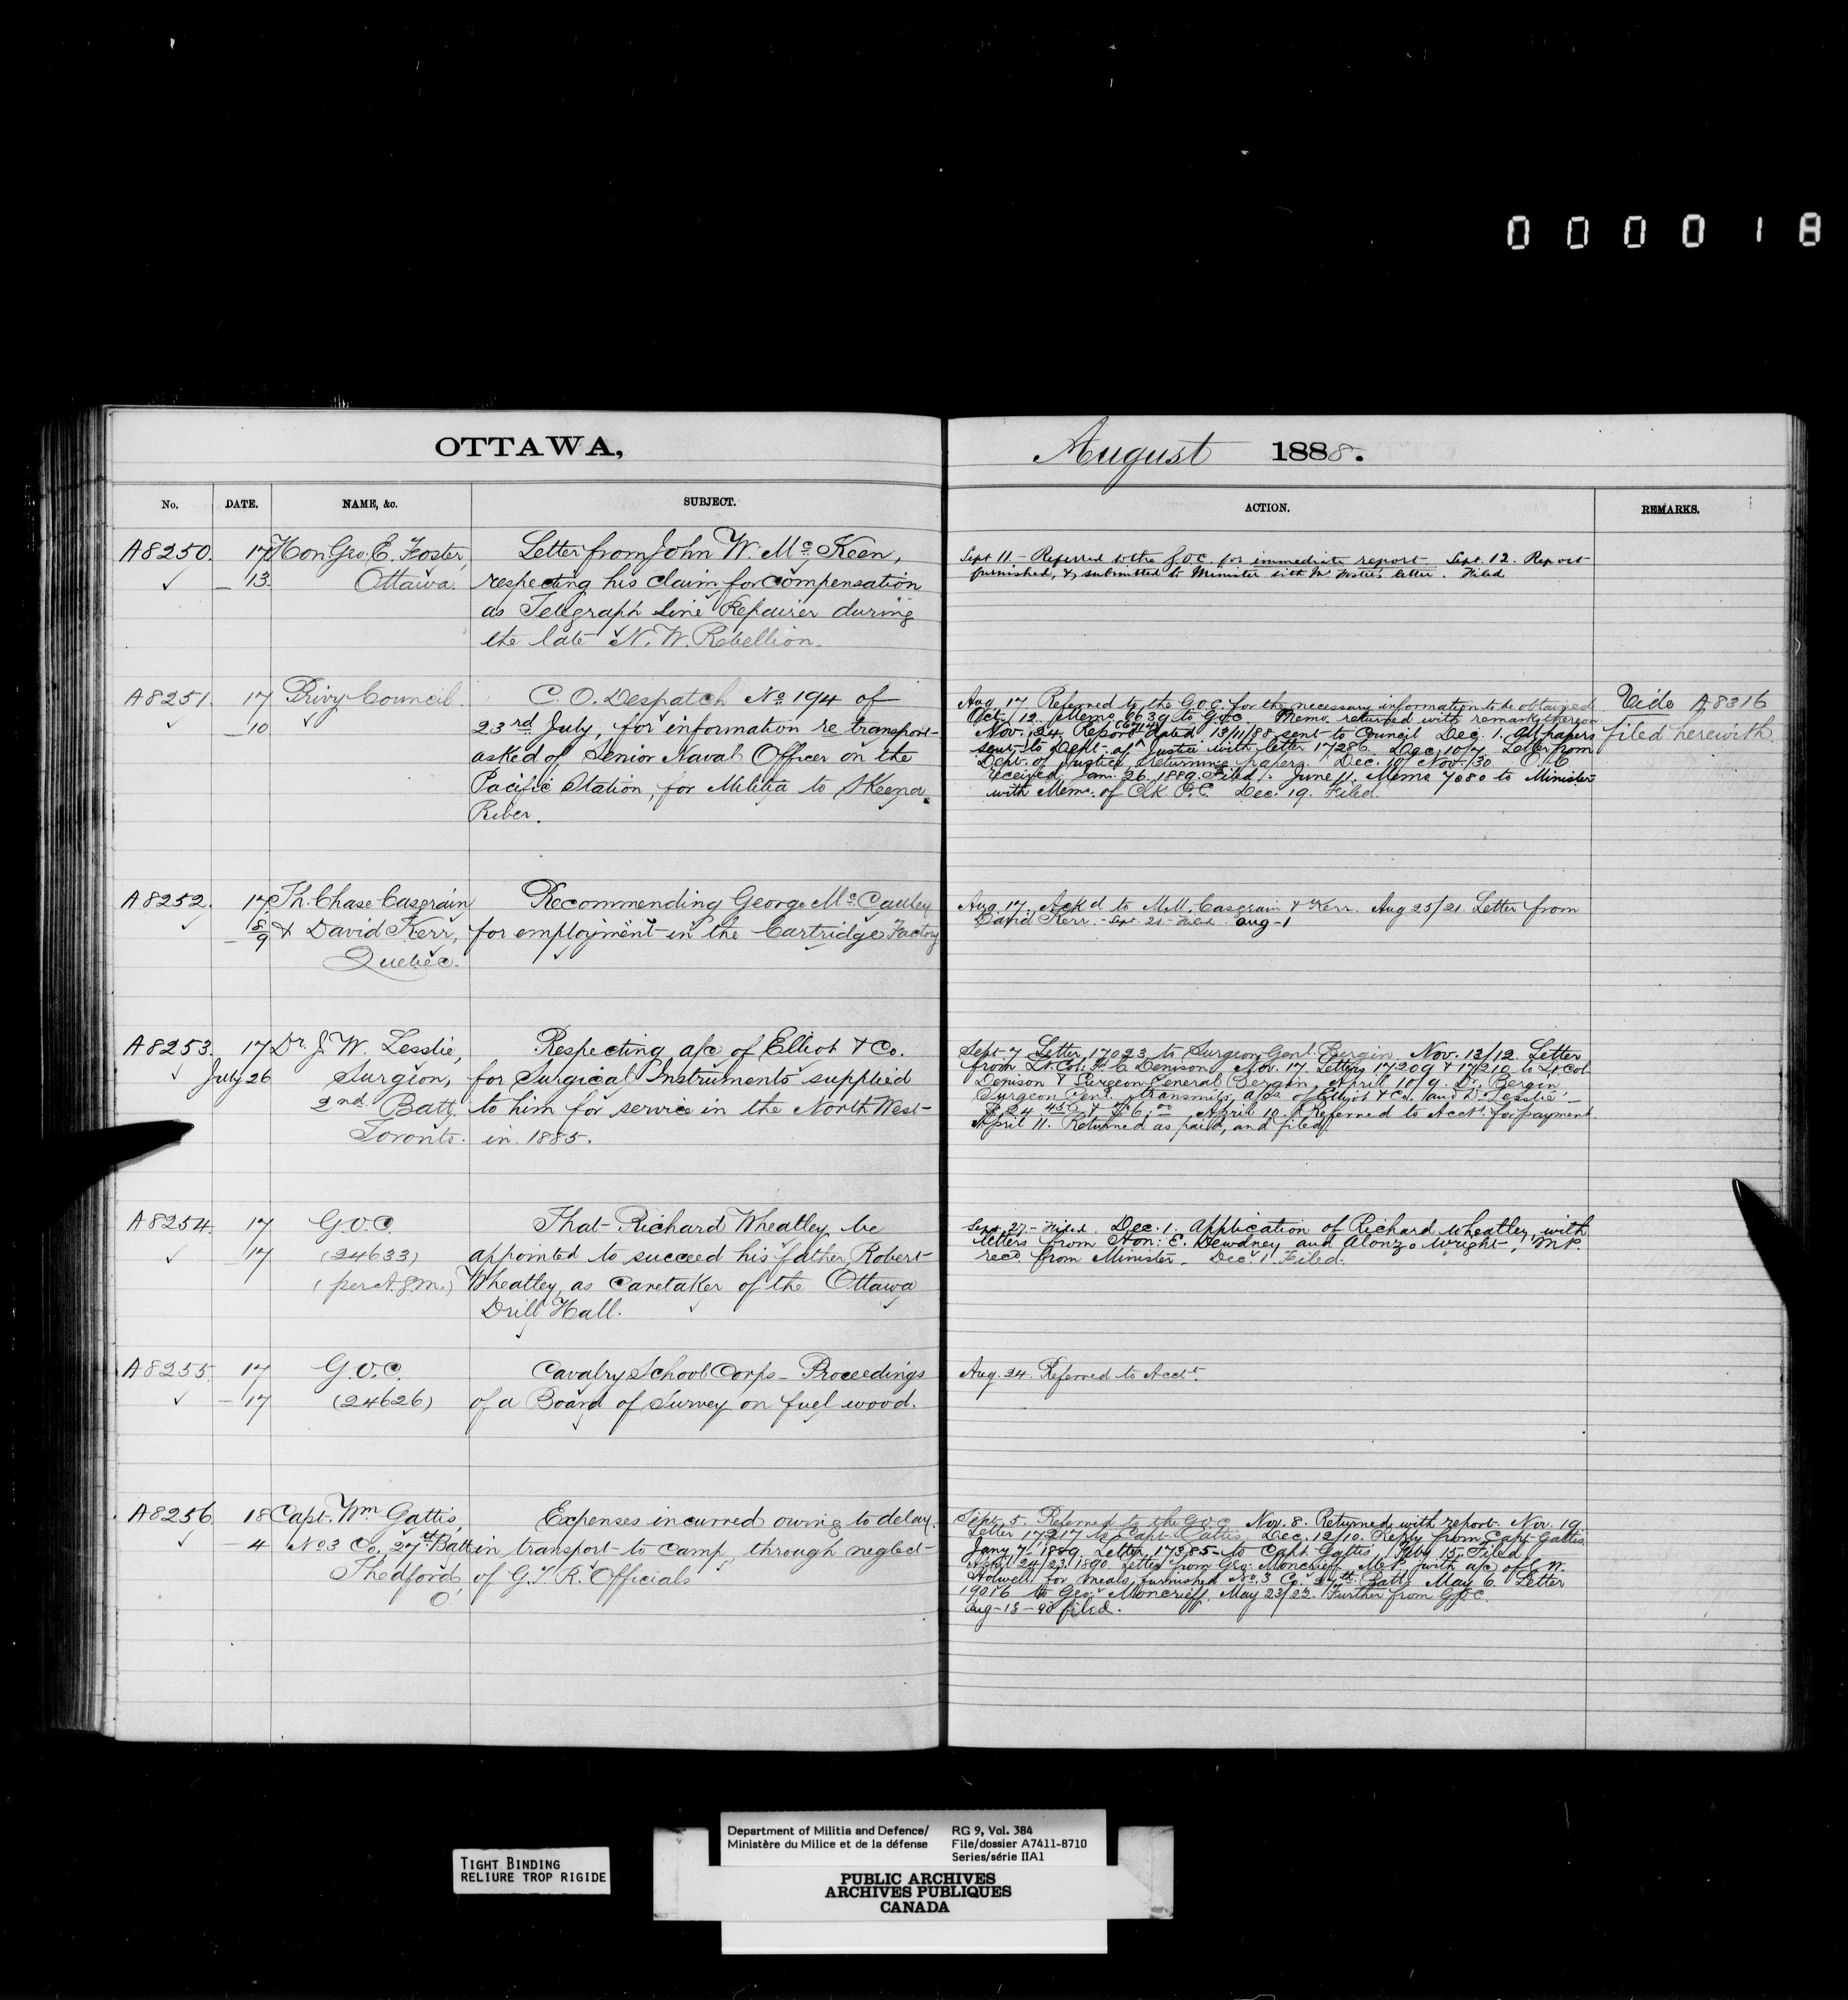 000018
OTTAWA,
August 1888.
No. DATE. NAME, &c. SUBJECT. ACTION. REMARKS.
A8250. 17 Hon Geo. E. Foster, Letter from John W. McKeen,
13 Ottawa. respecting his claim for compensation
as Telegraph Line Repairer during
the late N. W. Rebellion.
Sept 11 - Referred to the G.O.C. for immediate report - Sept. 12. Report
furnished, & submitted to Minister with Mr Foster's letter. Filed
A8251. 17 Privy Council. C. O. Despatch No 194 of
10 23rd July, for information re transport
asked of Senior Naval Officer on the
Pacific Station, for Militia to Skeena
River.
Aug 17. Referred to the G.O.C. for the necessary information to be obtained
Oct. 12. Memo 6639 to G.O.C. Memo returned with remarks thereon
Nov. 24. Report dated 13/11/88 sent to Council Dec. 1. All papers
sent to Dept. of Justice with letter 17286. Dec. 10/7 Letter from
Dept. of Justice returning papers. Dec. 10/Nov. 30 O.C.
received Jan. 26. 1889. Filed. June 11. Memo 7080 to Minister
with Memo. of Clk P.C. Dec. 19. Filed.
Vide A8316
filed herewith
A8252. 17 Th. Chase Casgrain Recommending George McCauley
18/9 & David Kerr, for employment in the Cartridge Factory
Quebec.
Aug. 17. Ackd to MM. Casgrain & Kerr. Aug 25/21. Letter from
David Kerr. - Sept 21 - Filed Aug - 1
A8253. 17 Dr. J. W. Lesslie, Respecting a/c of Elliot & Co.
July 26 Surgeon, for Surgical Instruments supplied
2nd Batt. to him for service in the North West
Toronto. in 1885.
Sept. 7 Letter 17023 to Surgeon Genl. Bergin Nov. 13/12. Letter
from Lt. Col. F. C. Denison Nov. 17. Letters 17209 & 17210 to Lt Col
Denison & Surgeon General Bergin, April 10/9. Dr. Bergin
Surgeon Genl. transmits a/cs of Elliot & Co. and Dr. Lesslie
April 10. Referred to Acct. for payment
April 11. Returned as paid, and filed.
A8254. 17 G.O.C. That Richard Wheatley be
17 (24633) appointed to succeed his father, Robert
(per A.G.M.) Wheatley, as Caretaker of the Ottawa
Drill Hall.
Sept. 27 - Filed. Dec. 1. Application of Richard Wheatley, with
letters from Hon: E. Dewdney and Alonzo Wright, M.P.
recd. from Minister. Dec. 1. Filed.
A8255. 17 G.O.C. Cavalry School Corps - Proceedings
17 (24626) of a Board of Survey on fuel wood.
Aug. 24. Referred to Acct.
A8256 18 Capt. Wm Gattis, Expenses incurred owing to delay
4 No 3 Co. 27th Batt in transport to Camp, through neglect
Thedford, of G.T.R. Officials
O.
Sept. 5. Referred to the G.O.C. Nov. 8. Returned with report. Nov. 19
Letter 17217 to Capt. Gattis. Dec. 12/10. Reply from Capt. Gattis.
Jany 7. 1889. Letter 17385 to Capt Gattis. Feby 15. Filed
April 24/23. 1890 Letter from Geo. Moncrieff M.P. with a/c of C. W.
for meals furnished No. 3 Co. 27th Batt. May 6. Letter
19016 to Geo. Moncrieff. May 23/22. Further from G.O.C.
Aug - 13 - 90 filed.
TIGHT BINDING
RELIURE TROP RIGIDE
Department of Militia and Defence/ RG 9, Vol. 384
Ministère du Milice et de la défense File/dossier A7411-8710
Series/série IIA1
PUBLIC ARCHIVES
ARCHIVES PUBLIQUES
CANADA